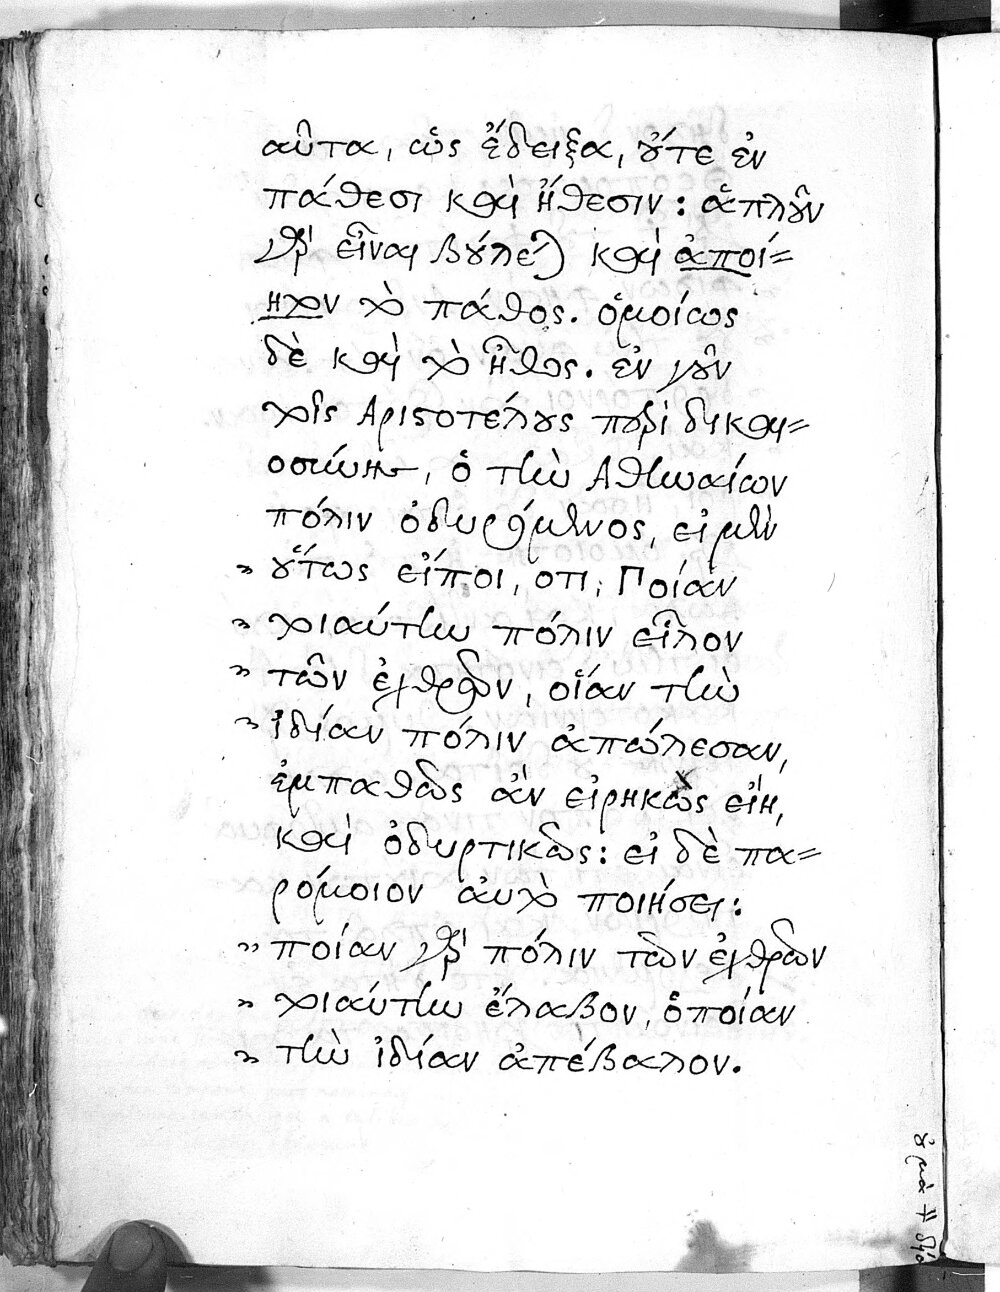 αὖτα, ὡς ἔδειξα, οὔτε ἐν
πάθεσι καὶ ἤθεσιν: ἁπλοῦν
γὰρ εἶναι βούλεται καὶ ἀποί=
ητον τὸ πάθος. ὁμοίως
δὲ καὶ τὸ ἦθος. ἐν γοῦν
τοῖς Αριστοτέλους περὶ δικαι=
οσιώης, ὁ τὴν Αθηναίων
πόλιν ὀδυρόμενος, εἰ μὲν
" οὕτως εἴποι, οτι, Ποίαν
" τοιαύτην πόλιν εἷλον
" τῶν ἐχθρῶν, οἵαν τὴν
" ἰδίαν πόλιν ἀπώλεσαν,
ἐμπαθῶς ἂν εἰρηκὼς εἴη,
καὶ ὀδυρτικῶς: εἰ δὲ πα=
ρόμοιον αὐτὸ ποιήσει:
" ποίαν γὰρ πόλιν τῶν ἐχθρῶν
" τοιαύτην ἔλαβον, ὁποίαν
" τὴν ἰδίαν ἀπέβαλον.